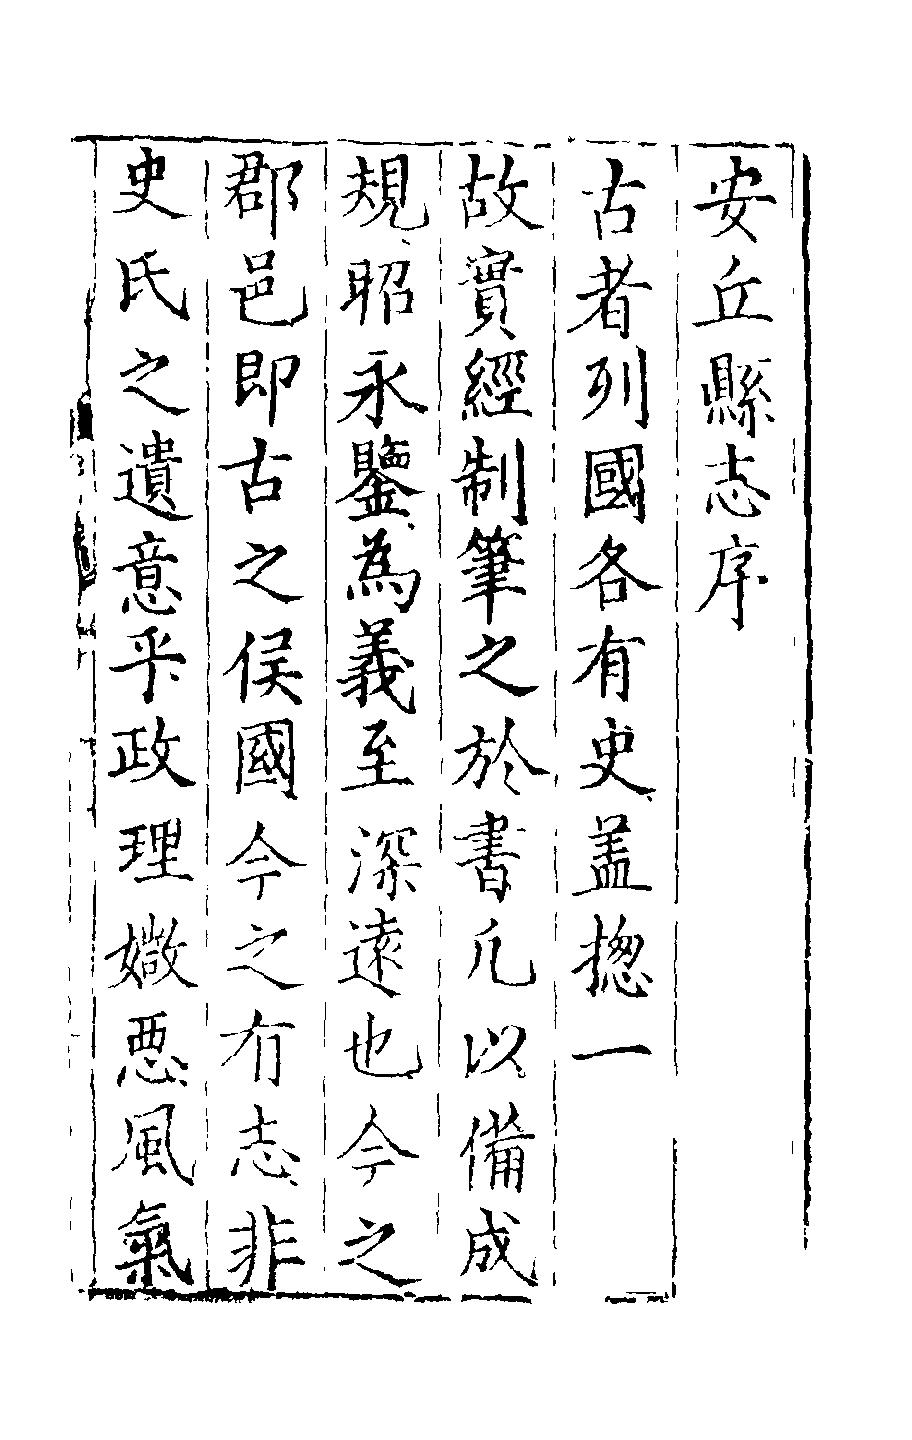 安丘縣志序
古者列國各有史蓋揔一
故實經制筆之於書凡以備成
規昭永鑒為義至深遠也今之
郡邑即古之侯國今之有志非
史氏之遺意乎政理媺惡風氣